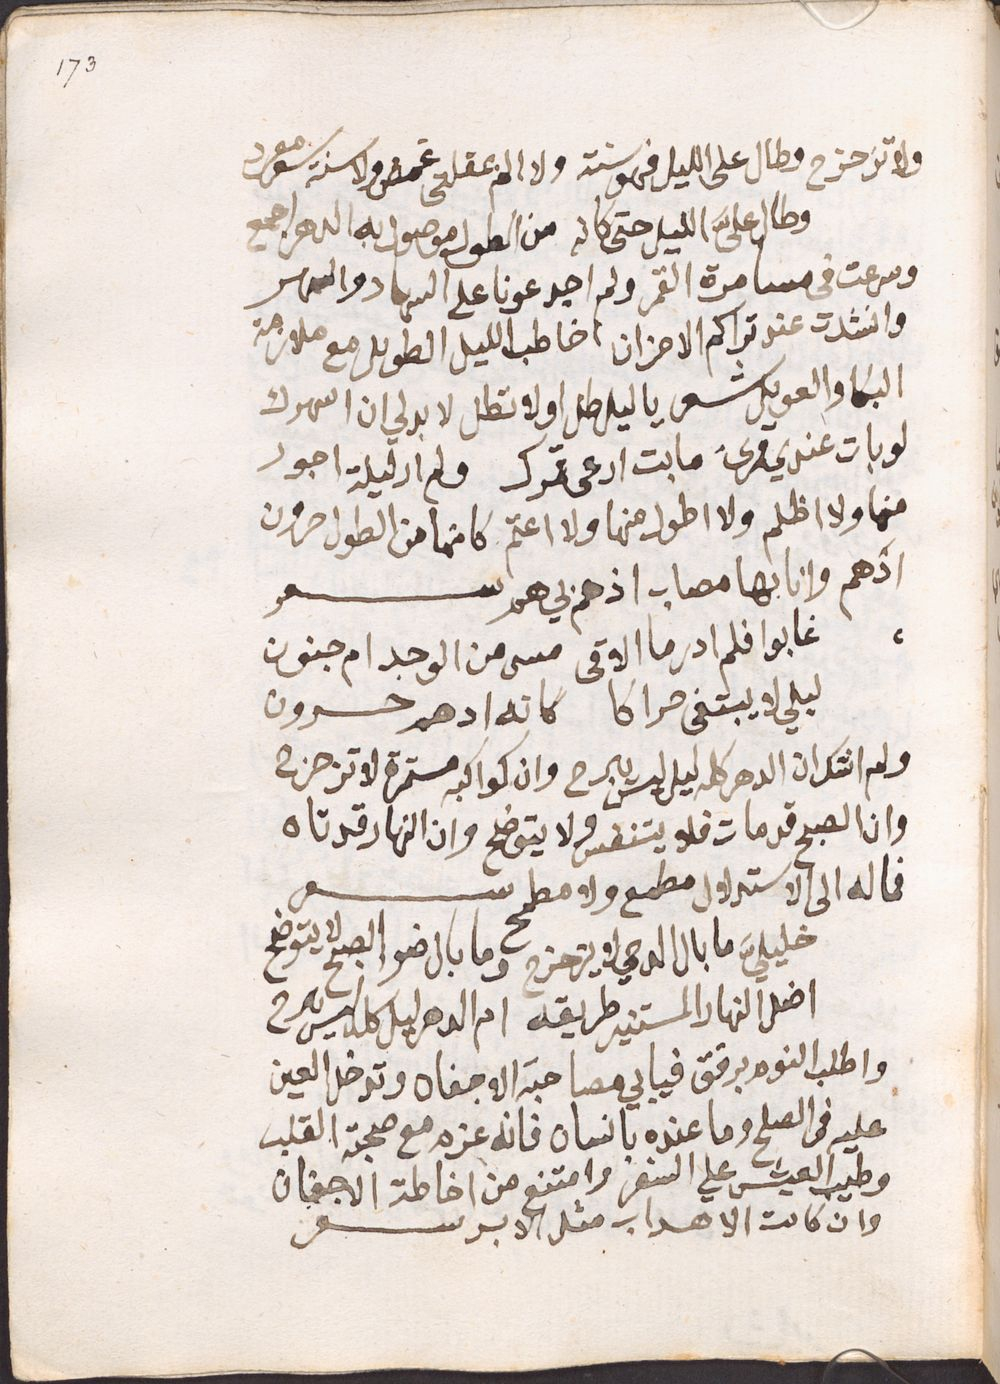 173
ولا تزحزح وطال على الليل فهو سنة ولا الم عقلتى غمض ولا سنة شعر
وطال علىّ الليل حتى كانه من الطول موصول به الدهر اجمع
وسرعت فى مسامرة القمر ولم اجد عونا على السهاد والسهر
وانشدت عند تراكم الاحزان اخاطب الليل الطويل مع ملازمة
البكا والعويل شعر يا ليل طل او لا تطل لا بد لي ان اسهرك
لو بات عندي قمرى ما بت ارعى قمرك ولم ار ليلة اجود
منها ولا اظلم ولا اطول منها ولا اعتم كانها من الطول حرون
ادهم وانا بها مصاب اذ هم بي هم شعر
غابوا فلم ادر ما الاقى مس من الوجد ام جنون
ليلي لا يبتغى حراكا كانه ادهم حرون
ولم اشك ان الدهر كله ليل ليس يبرح وان كواكبه مستمرة لا تزحزح
وان الصبح قد مات فلا يتنفس ولا يتوضح وان النهار قد تاه
فما له الى الاستدلال مطمع ولا مطمح شعر
خليليّ ما بال الدجي لا يزحزح وما بال ضو الصبح لا يتوضح
اضل النهار المستنير طريقه ام الدهر ليل كله ليس يبرح
واطلب النوم برفق فيابي مصاحبة الاجفان وتدخل العين
عليه فى الصلح وما عنده بانسان فانه عزم مع صحبة القلب
وطيب العيش علي السفر وامتنع من اخاطة الاجفان
وان كانت الاهداب مثل الابر شعر